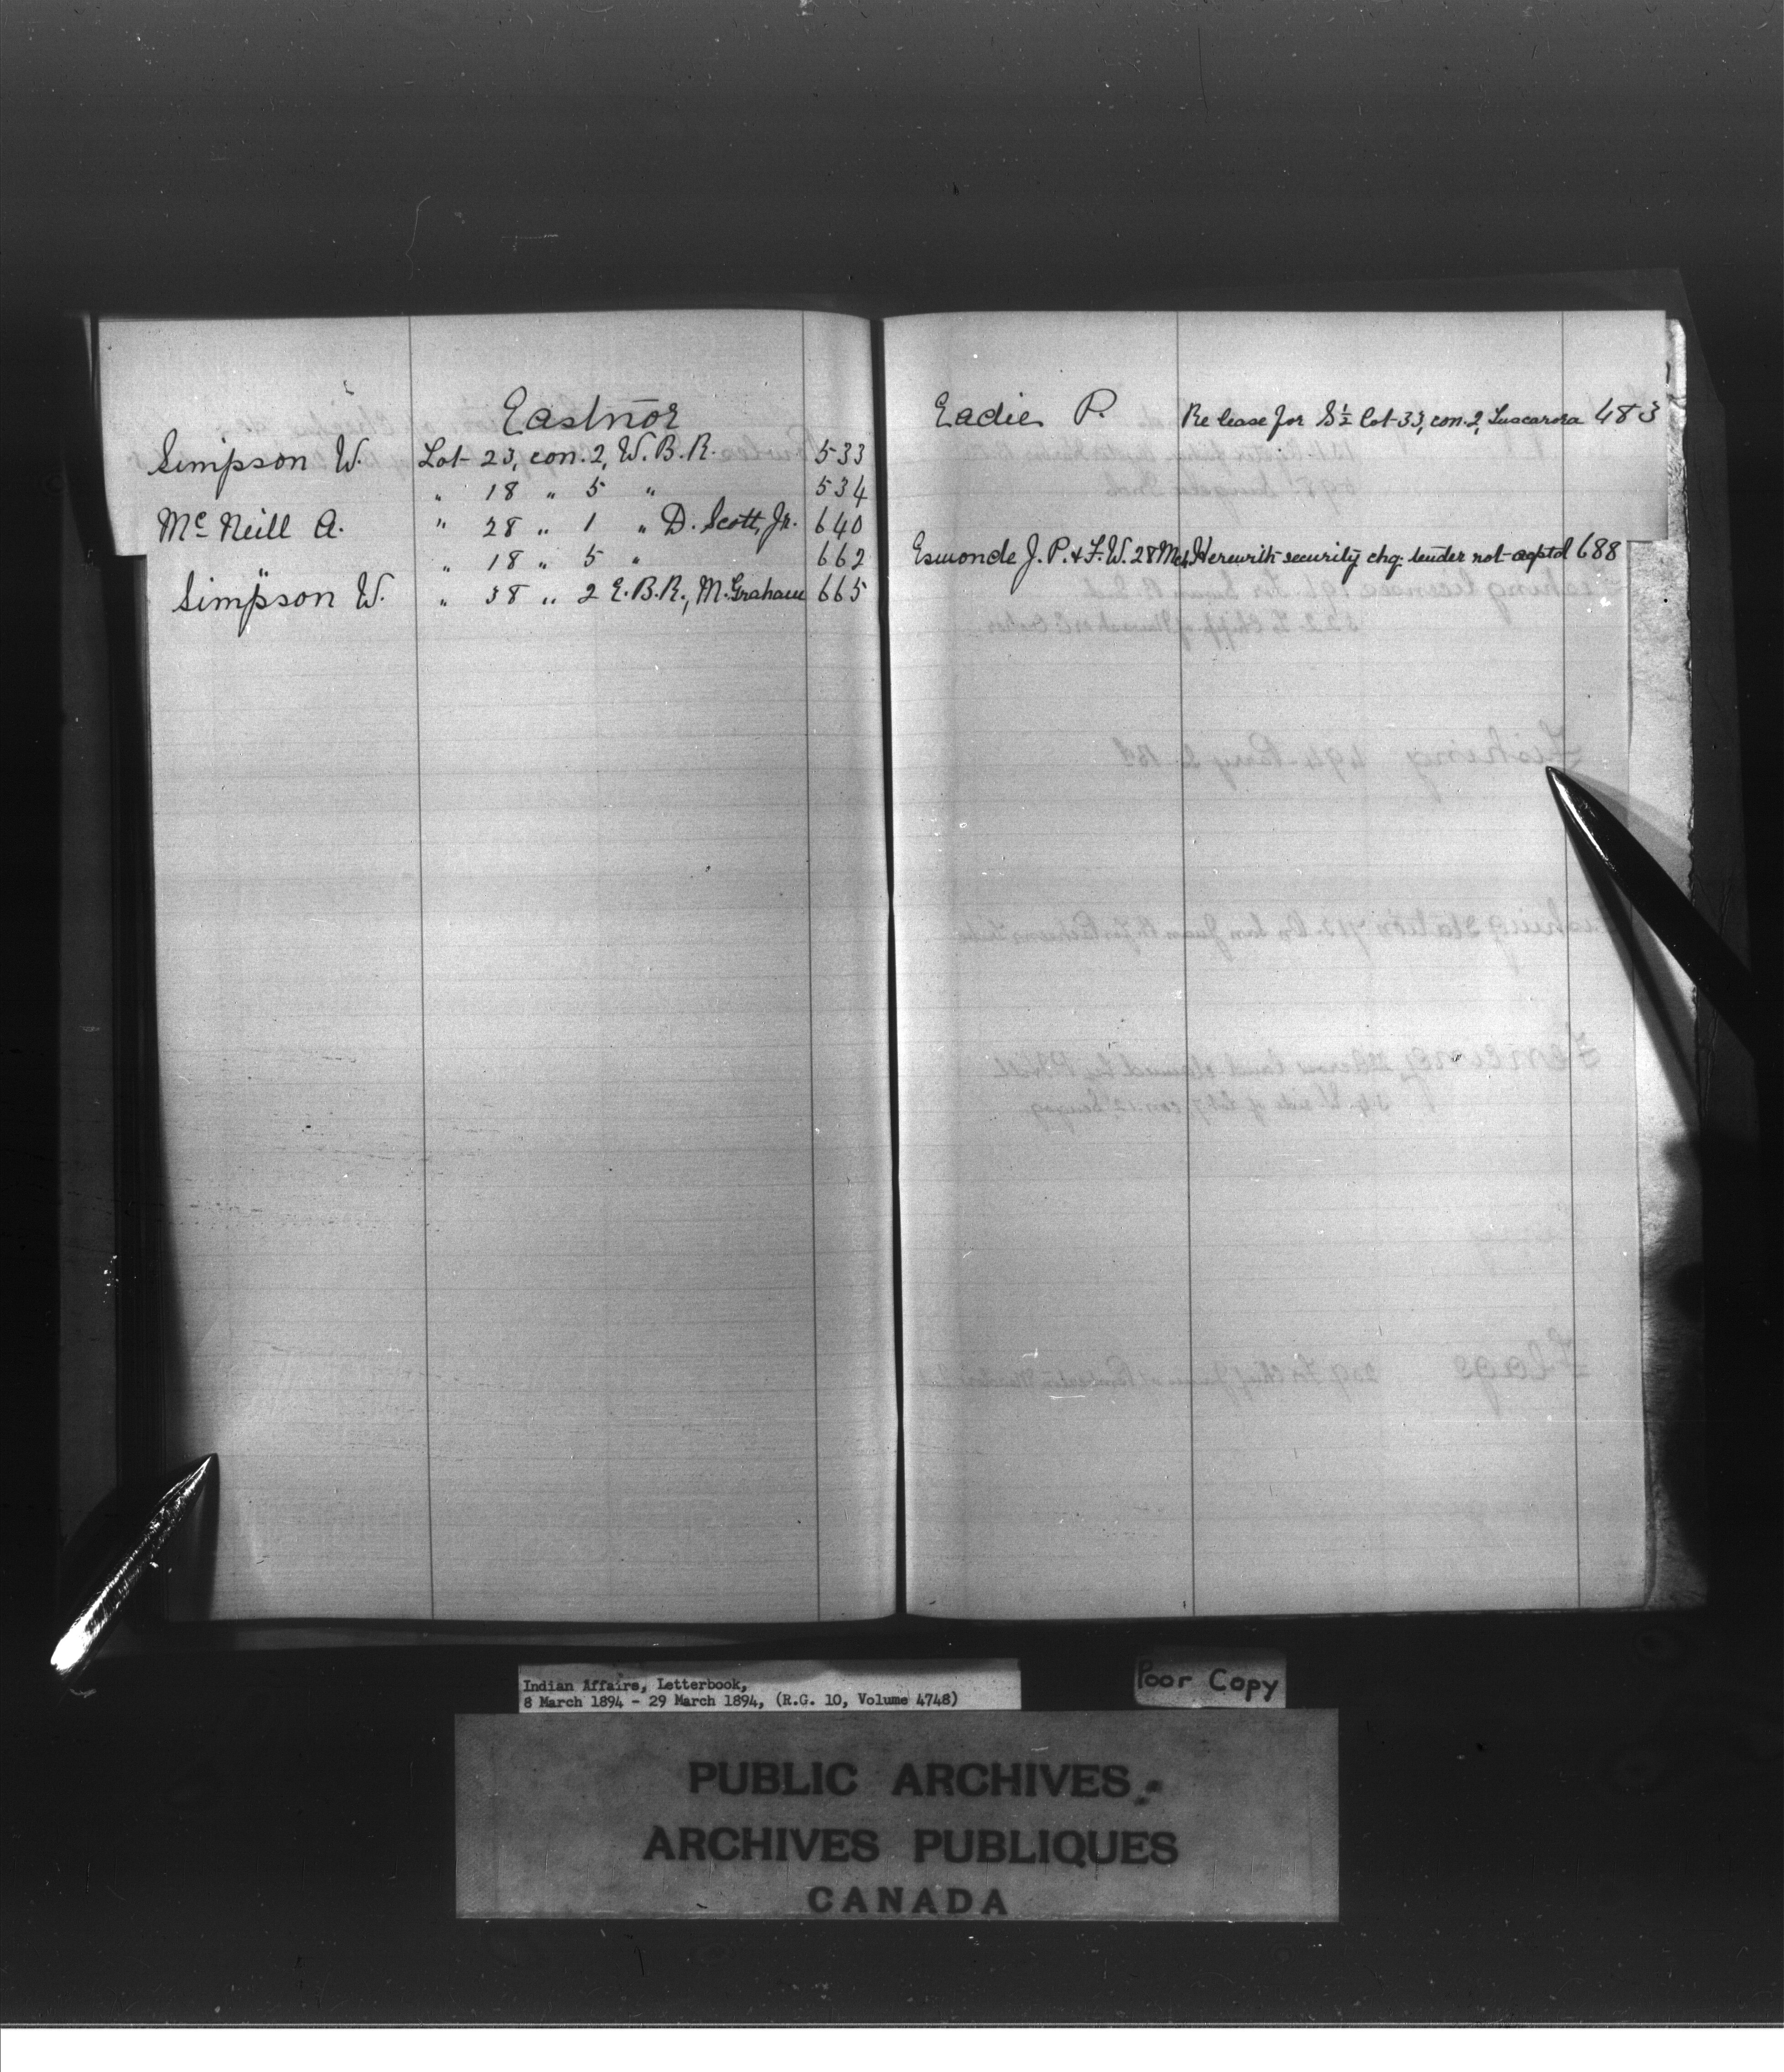 Eastnor
Simpson W. Lot 23, con. 2, W.B.R. 533
" 18 " 5 " 534
McNeill A. " 28 " 1 " D. Scott, Jr. 640
" " 18 " 5 " 662
Simpson W. " 38 " 2 E.B.R., M. Graham 665
Eadie P. Re lease for S½ lot 33, con. 2, Tuscarora 483
Esmonde J.P. & F.W. 28 Mch Herewith security chq. tender not acptd 688
Indian Affairs, Letterbook,
8 March 1894 - 29 March 1894, (R.G. 10, Volume 4748)
Poor Copy
PUBLIC ARCHIVES
ARCHIVES PUBLIQUES
CANADA